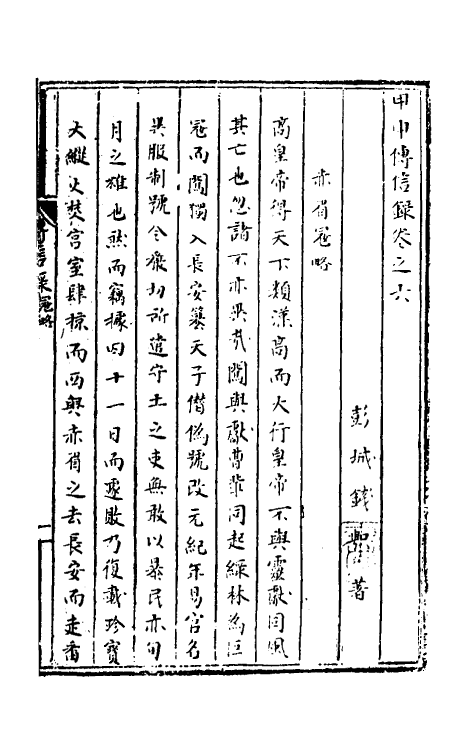 甲申傳信錄卷之六
彭城錢 著
赤眉寇略
高皇帝得天下類漢高而大行皇帝不與靈獻同風
其亡也忽諸不亦異哉闖與獻曹輩同起綠林為巨
寇而闖獨入長安纂天子僣偽號改元紀年易官名
異服制號令嚴切所遣守土之吏無敢以暴民亦旬
月之雄也然而竊據四十一日而遽敗乃復載珍寶
大縱火焚宮室肆掠而西與赤眉之去長安而走者